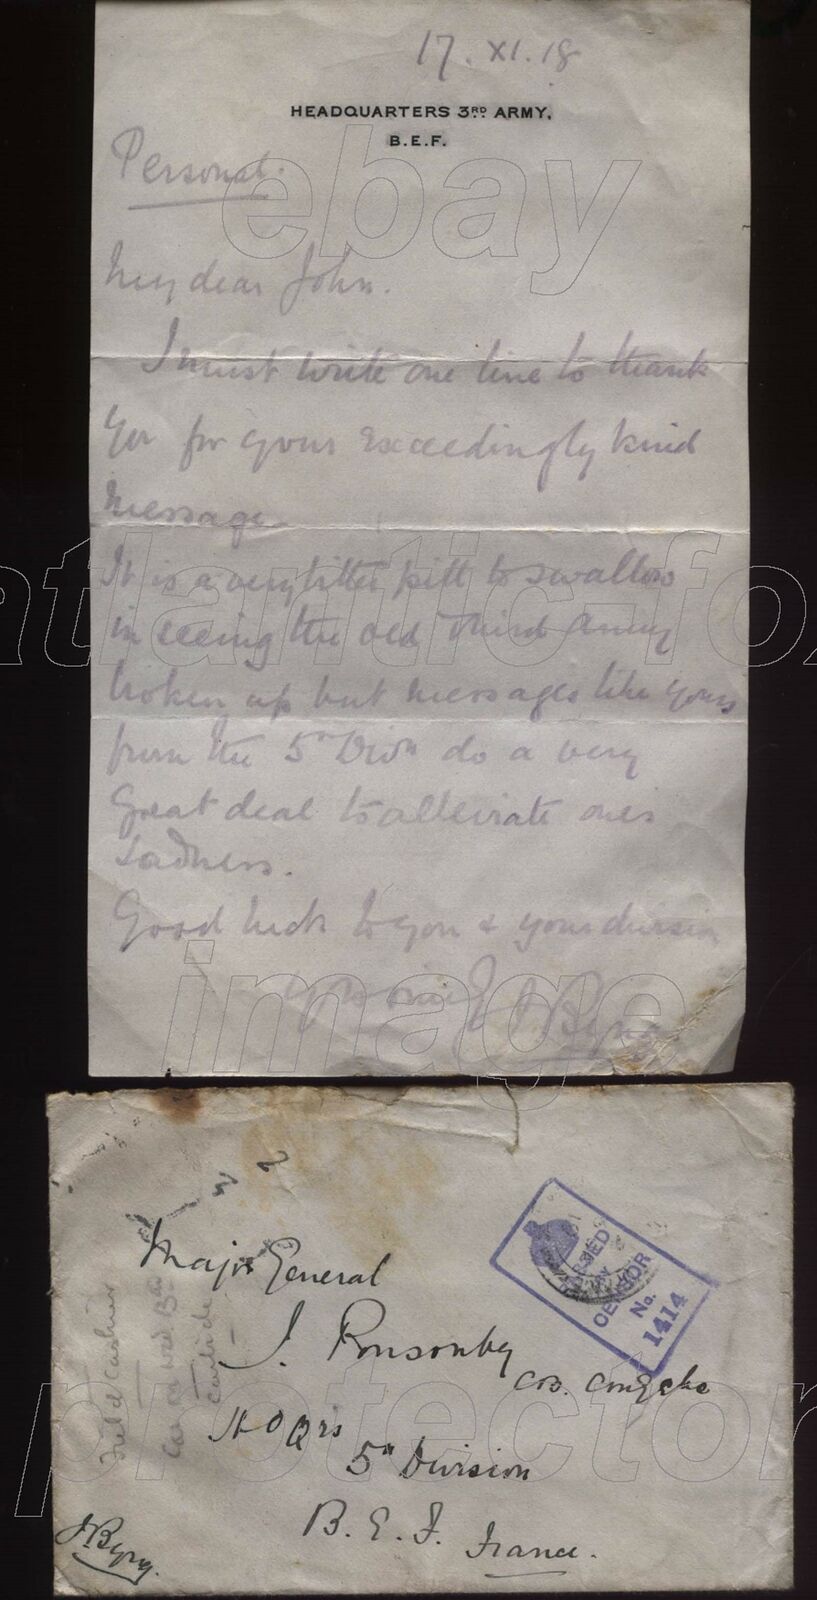 17. XI. 18
HEADQUARTERS 3RD ARMY,
B.E.F.
Personal.
My dear John.
I must write one line to thank
You for your exceedingly kind
message
It is a very bitter pill to swallow
in seeing the old Third Army
broken up but messages like yours
from the 5th Divn do a very
Great deal to alleviate ones
sadness.
Good luck to you & your division
J Byng
Major General
J. Ponsonby
CB. CMG etc
HdQrs
5th Division
B. E. F. France.
J Byng.
PASSED
BY
CENSOR
No.
1414
Field Cashier
Carbide
ebay
atlantic-fox
image
protector